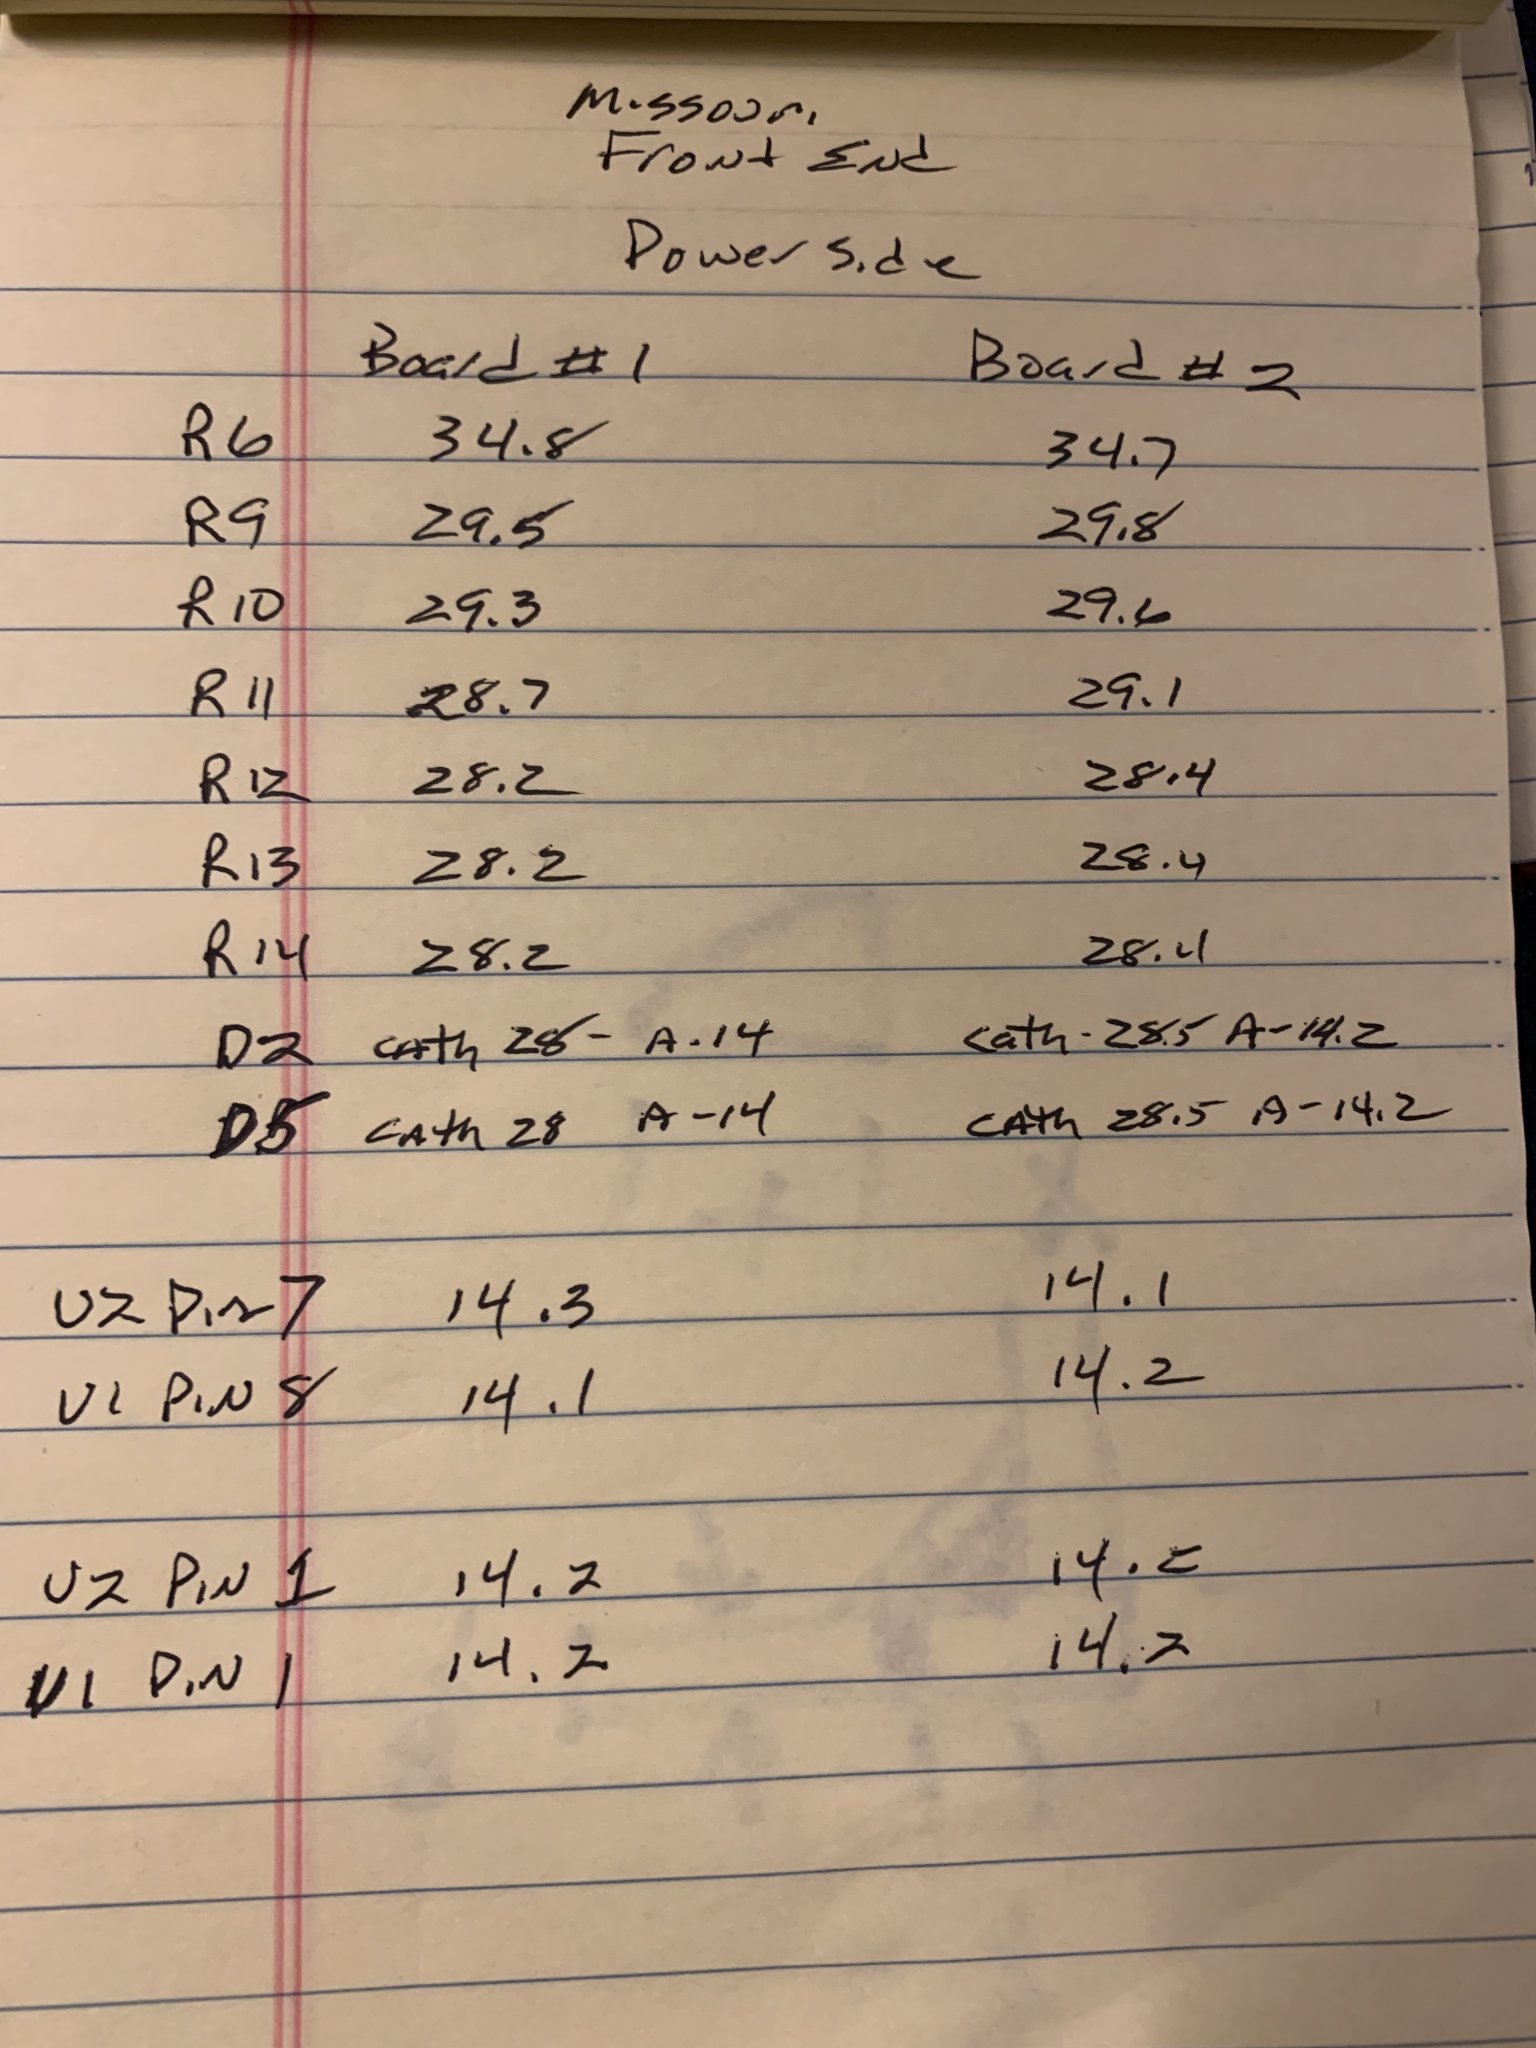 Missouri
Front End
Power Side
Board #1 Board #2
R6 34.8 34.7
R9 29.5 29.8
R10 29.3 29.6
R11 28.7 29.1
R12 28.2 28.4
R13 28.2 28.4
R14 28.2 28.4
D2 cath 28- A-14 cath-28.5 A-14.2
D5 cath 28 A-14 cath 28.5 A-14.2
U2 Pin 7 14.3 14.1
U1 Pin 8 14.1 14.2
U2 Pin 1 14.2 14.2
U1 Pin 1 14.2 14.2